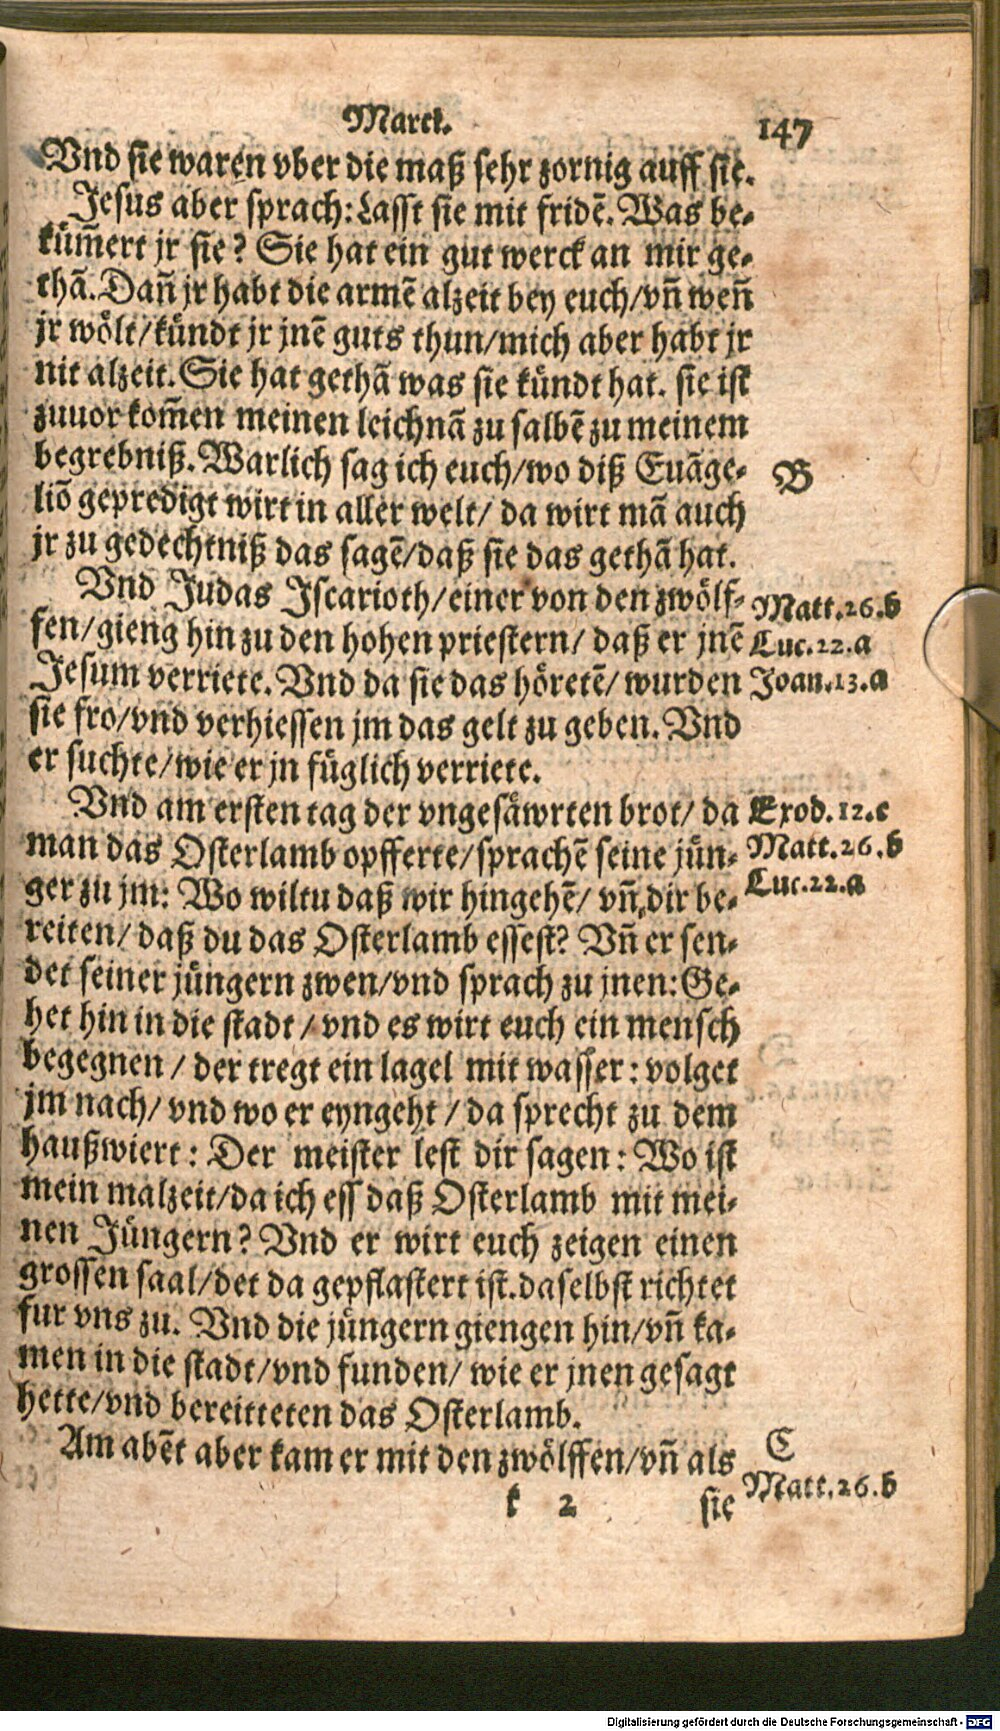 Marck.
147
Vnd sie waren vber die maß sehr zornig auff sie.
Jesus aber sprach: Lasst sie mit fridẽ. Was be-
kům̃ert jr sie? Sie hat ein gut werck an mir ge-
thã. Dañ jr habt die armẽ alzeit bey euch/vñ weñ
jr wölt/kündt jr jnẽ guts thun/mich aber habt jr
nit alzeit. Sie hat gethã was sie kündt hat. sie ist
zuuor kom̃en meinen leichnã zu salbẽ zu meinem
begrebniß. Warlich sag ich euch/wo diß Euãge-
B
liõ gepredigt wirt in aller welt/ da wirt mã auch
jr zu gedechtniß das sagẽ/daß sie das gethã hat.
Vnd Judas Jscarioth/einer von den zwölf-
Matt.26.b
fen/gieng hin zu den hohen priestern/ daß er jnẽ
Luc.22.a
Jesum verriete. Vnd da sie das höretẽ/ wurden
Joan.13.a
sie fro/vnd verhiessen jm das gelt zu geben. Vnd
er suchte/wie er jn füglich verriete.
Vnd am ersten tag der vngesäwrten brot/ da
Exod.12.c
man das Osterlamb opfferte/sprachẽ seine jün-
Matt.26.b
ger zu jm: Wo wiltu daß wir hingehẽ/ vñ dir be-
Luc.22.a
reiten/ daß du das Osterlamb essest? Vñ er sen-
det seiner jüngern zwen/vnd sprach zu jnen: Ge-
het hin in die stadt/ vnd es wirt euch ein mensch
begegnen/ der tregt ein lagel mit wasser: volget
jm nach/ vnd wo er eyngeht/ da sprecht zu dem
haußwiert: Der meister lest dir sagen: Wo ist
mein malzeit/da ich ess daß Osterlamb mit mei-
nen Jüngern? Vnd er wirt euch zeigen einen
grossen saal/det da gepflastert ist. daselbst richtet
fur vns zu. Vnd die jüngern giengen hin/vñ ka-
men in die stadt/vnd funden/ wie er jnen gesagt
hette/vnd bereitteten das Osterlamb.
Am abẽt aber kam er mit den zwölffen/vñ als
C
Matt.26.b
k 2
sie
Digitalisierung gefördert durch die Deutsche Forschungsgemeinschaft - DFG